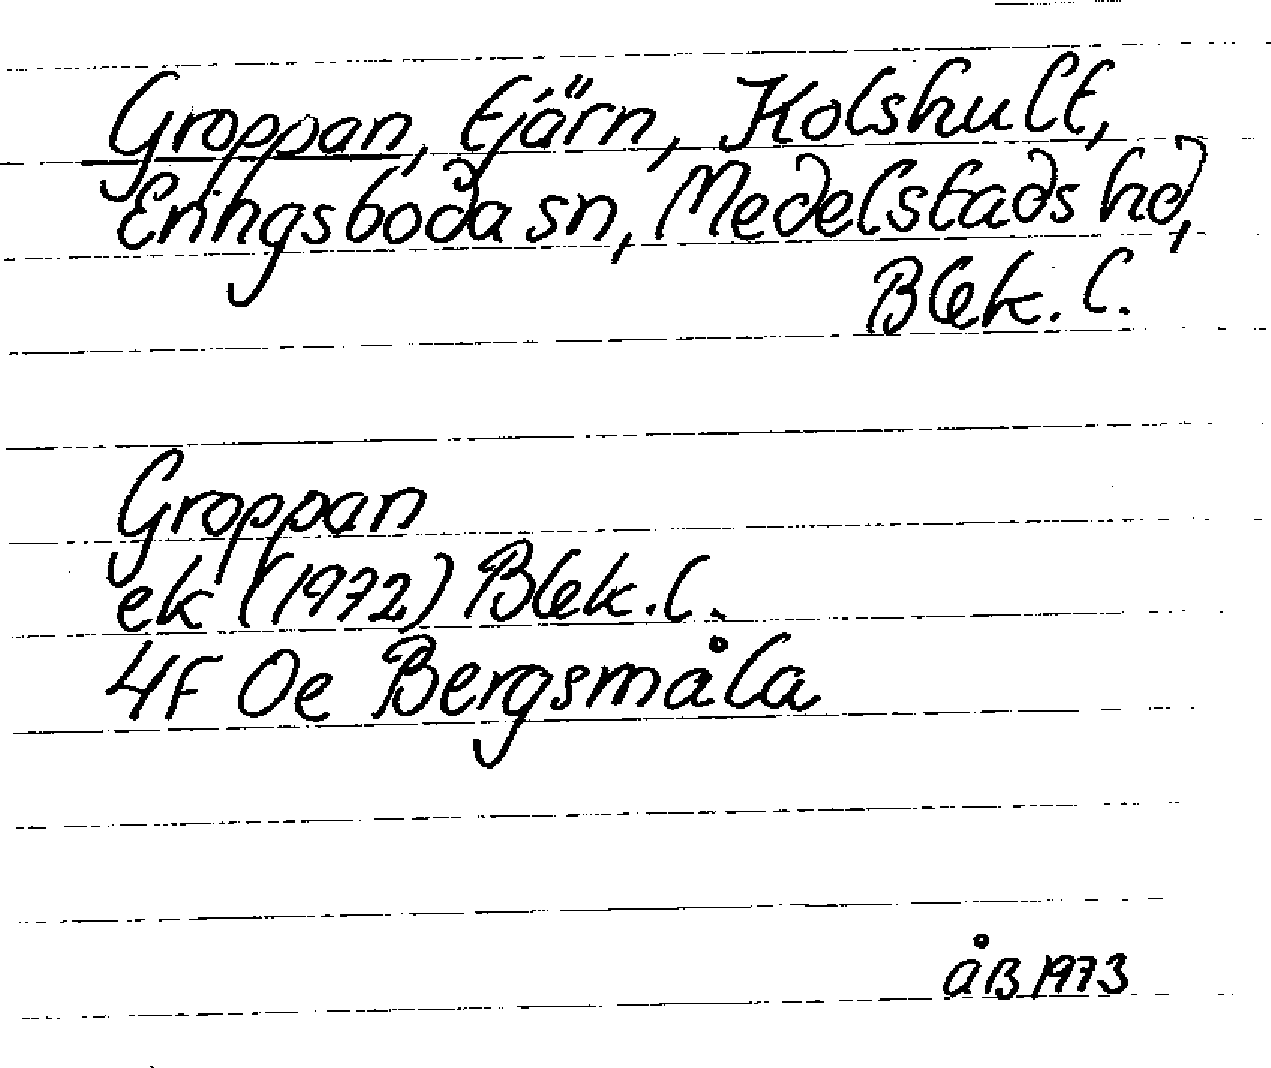 Groppan, tjärn, Kolshult,
Eringsboda sn, Medelstads hd,
Blek. l.
Groppan
ek (1972) Blek. l.
4F Oe Bergsmåla
åB 1973